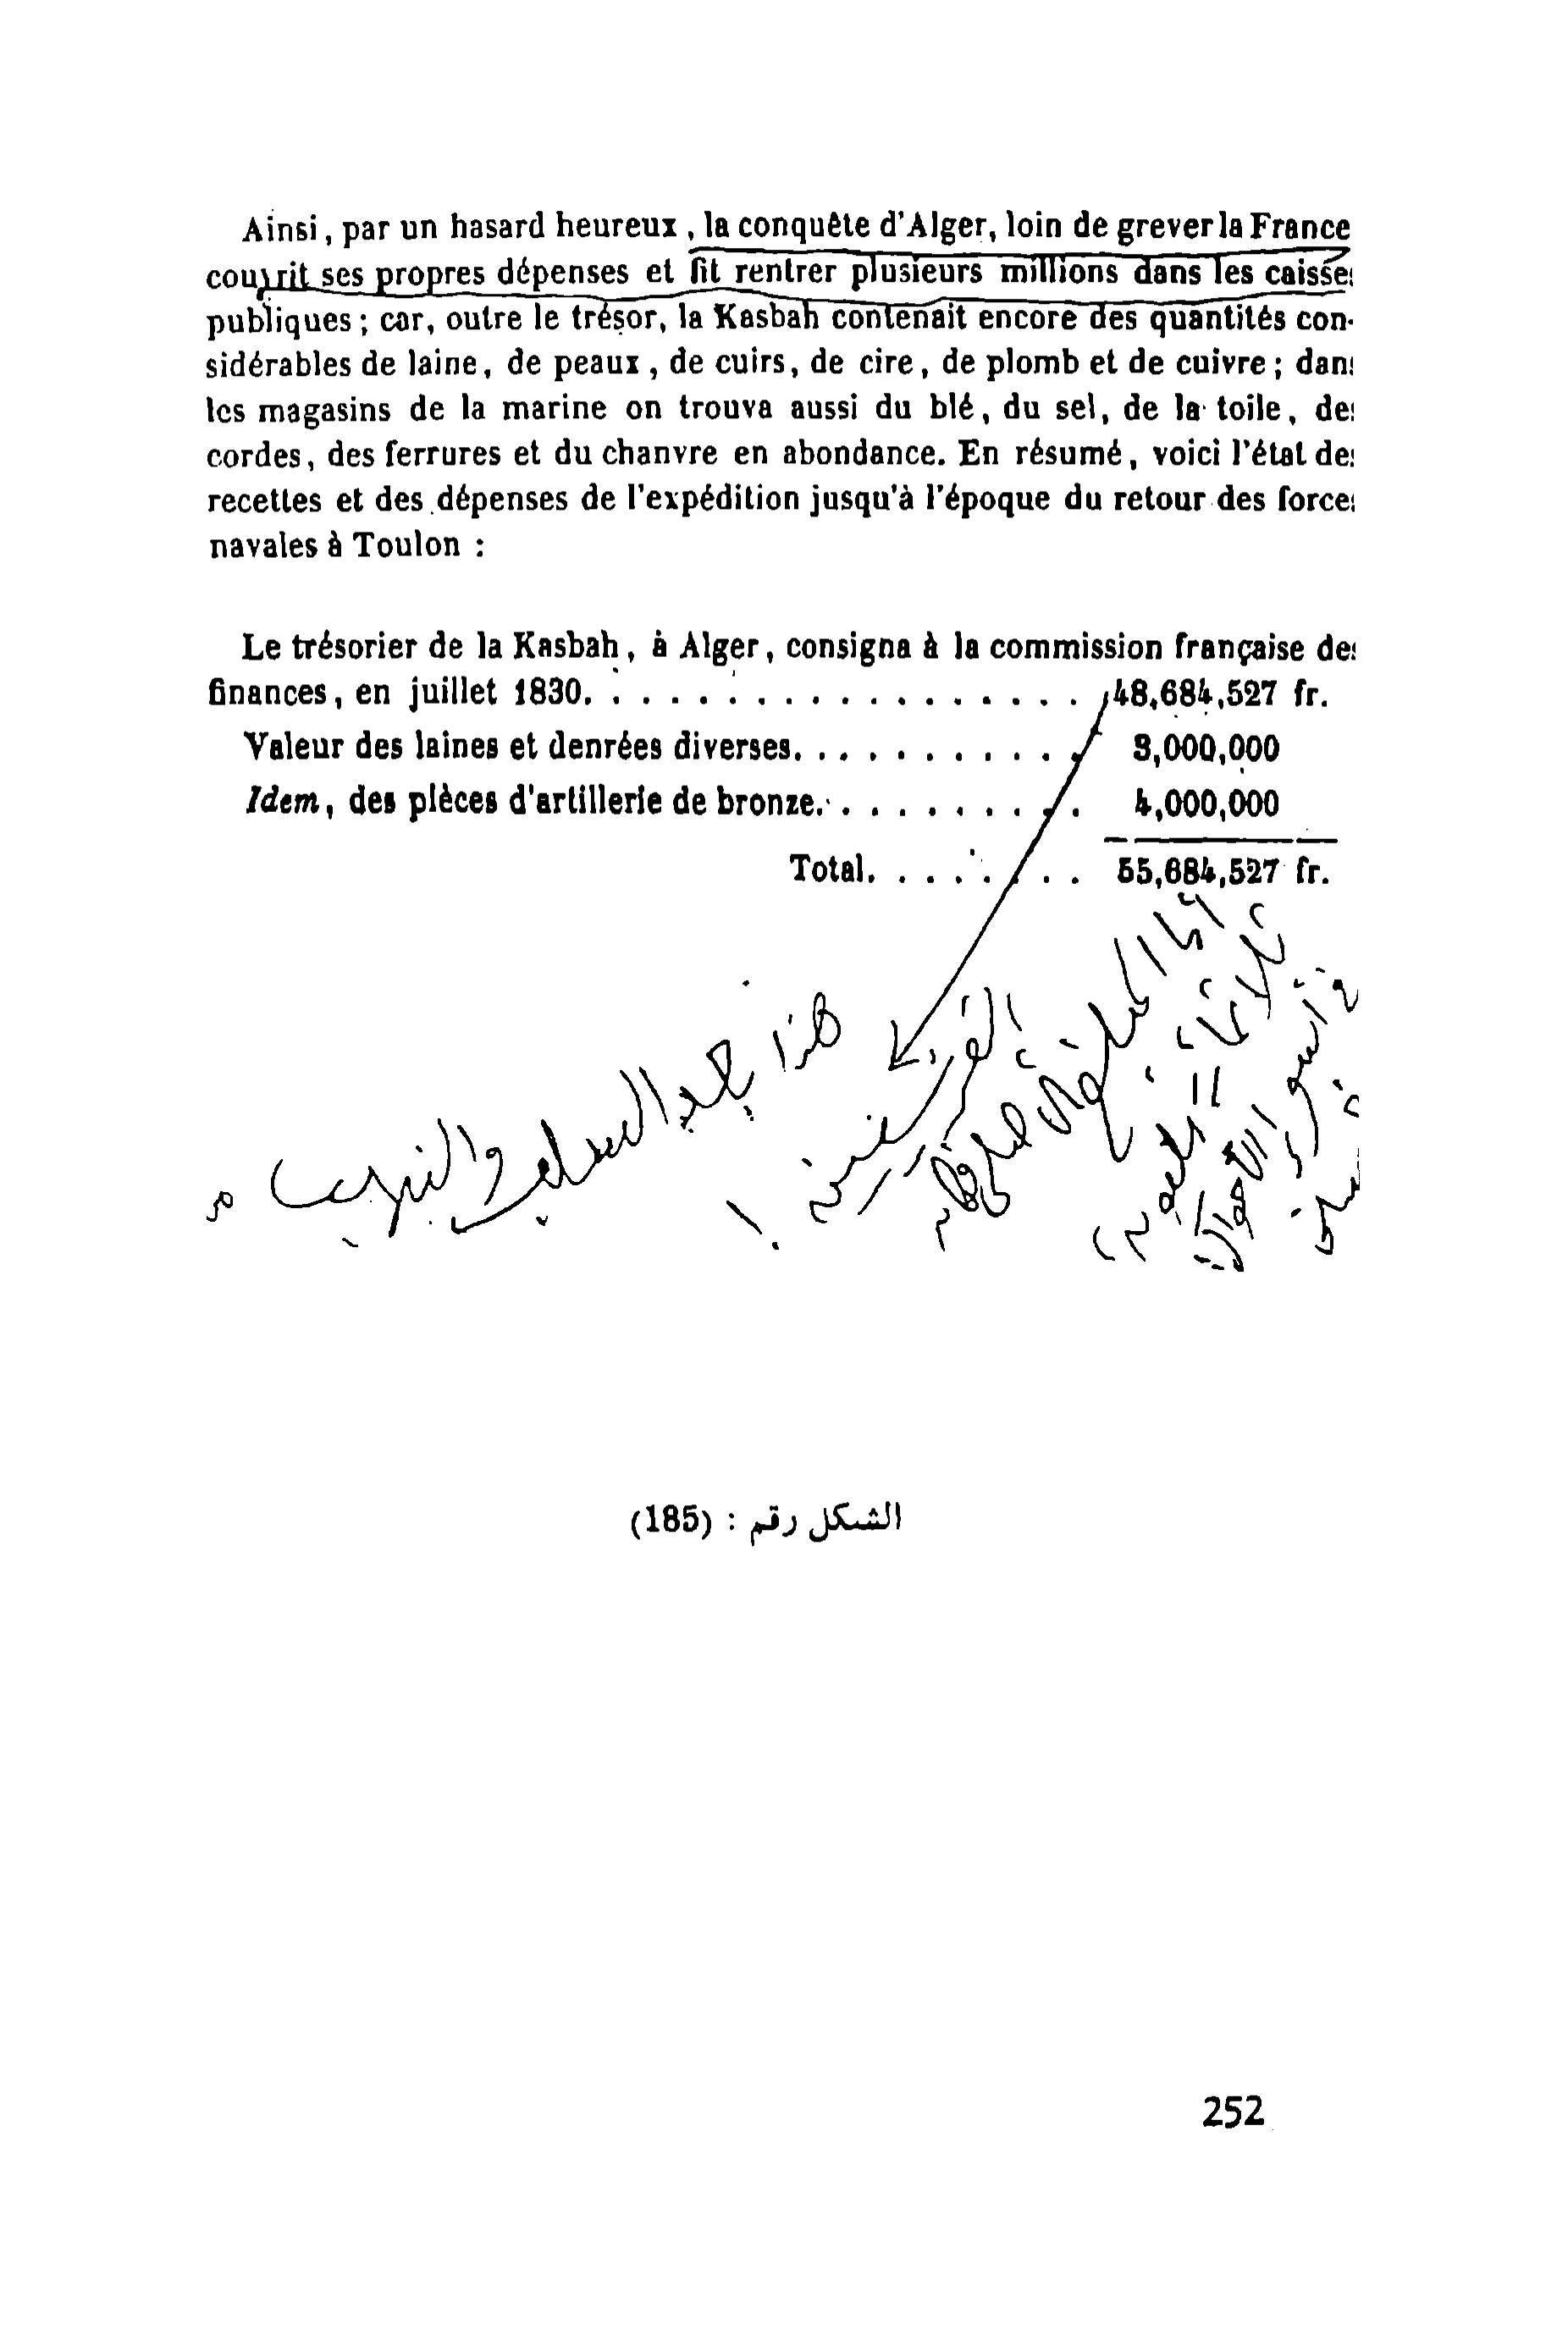 Ainsi, par un hasard heureux, la conquête d'Alger, loin de grever la France
couvrit ses propres dépenses et fit rentrer plusieurs millions dans les caisses
publiques ; car, outre le trésor, la Kasbah contenait encore des quantités con-
sidérables de laine, de peaux, de cuirs, de cire, de plomb et de cuivre ; dans
les magasins de la marine on trouva aussi du blé, du sel, de la toile, des
cordes, des ferrures et du chanvre en abondance. En résumé, voici l'état des
recettes et des dépenses de l'expédition jusqu'à l'époque du retour des forces
navales à Toulon :
Le trésorier de la Kasbah, à Alger, consigna à la commission française des
finances, en juillet 1830. . . . . . . . . . . . . . . . . . 48,684,527 fr.
Valeur des laines et denrées diverses. . . . . . . . . . . 3,000,000
Idem, des pièces d'artillerie de bronze. . . . . . . . . . 4,000,000
Total. . . . . . . . 55,684,527 fr.
هذا بعد السلب والنهب من
الشكل رقم : (185)
252